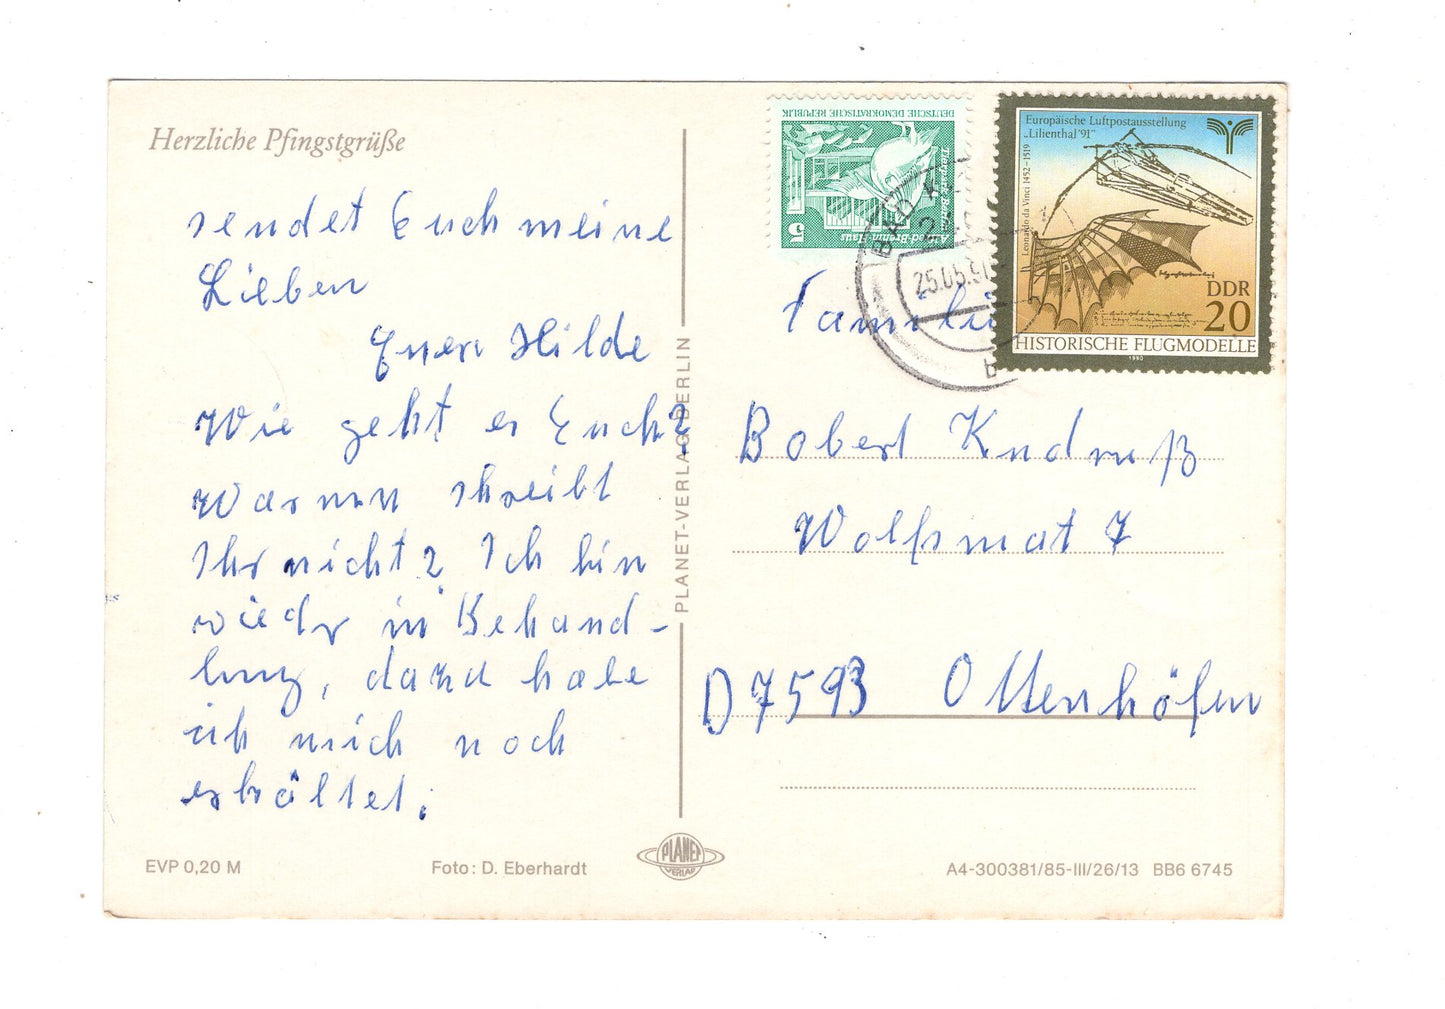 Herzliche Pfingstgrüße
sendet Euch meine
Lieben
Euere Hilde
Wie geht es Euch?
Warum schreibt
Ihr nicht? Ich bin
wieder in Behand-
lung, dazu habe
ich mich noch
erkältet.
EVP 0,20 M
Foto: D. Eberhardt
PLANET-VERLAG BERLIN
PLANET
VERLAG
DEUTSCHE DEMOKRATISCHE REPUBLIK
5
BAD K
25.05.91
Europäische Luftpostausstellung
„Lilienthal '91"
Leonardo da Vinci 1452–1519
DDR
20
HISTORISCHE FLUGMODELLE
1990
Familie
7
D 7593 Ottenhöfen
A4-300381/85-III/26/13 BB6 6745